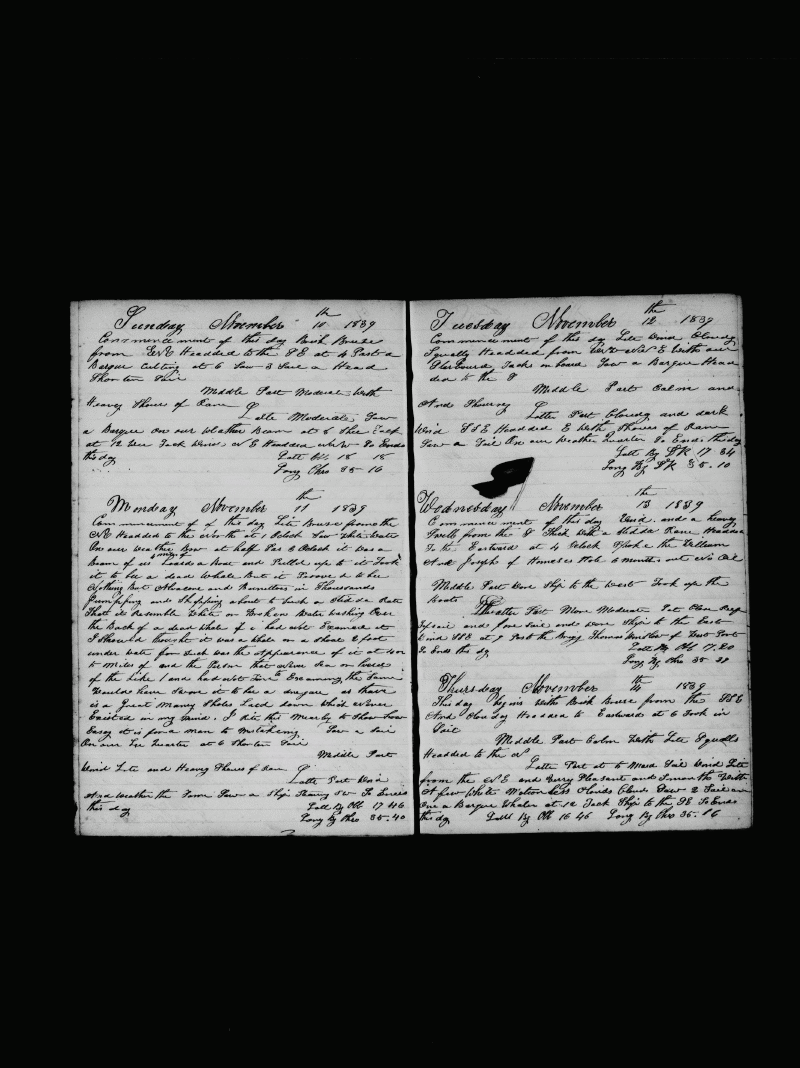 Sunday November 10th 1839
Commencement of this day Brisk Breeze
from ENE Headded to the SE at 4 Past a
Barque Cutting at 6 Saw 3 Sail a Head
Shorten Sail
Middle Part Moderate With
Heavey Shours of Rane
Latte Moderate Saw
a Barque On our Weather Beam at 8
at 12 Tack Wind N E Headded NNW So Ends
this day Latt Ob. 18 18
Long Chro 35 16
Monday November 11th 1839
Commencement of this day Lite Breeze from the
NE Headded to the North at 1 Oclock Saw White Water
On our weather Bow at half Pas 3 Oclock it was a
Beam of us Loard a Boat and Pulled up to it Took
it to be a dead Whale But it Prooved to be
Nothing But Abacore and Bonettors in Thousands
Jumpping and Shipping about to Such a
That it Resemble White or Broken Water Washing Over
the Back of a dead whale if i had not Examand it
I Should thought it was a whale or a Shoal 2 foot
under water for Such was the Appearance of it at
to Miles of and the Person that Never Sea or
of the Like and had not Examaing the Same
Would have Swore it to be a as thair
is a Great Maney Sholes Laid down Which Never
Existed in my mind. I rite this Mearly to Show how
Easey it is for a man to Mistaking. Saw a Sail
On our Lee Quarter at 6 Shorten Sail
Middle Part
Wind Lite and Heavey Shours of Rane
Latte Part Wind
And Weather the Same Saw a Ship Stearing SW So Ends
this day Latt By Ob 17 46
Long By Chro 35.40
Tuesday November 12th 1839
Commencement of this day Lite Wind Cloudy
Squally Headded from to N E With our
Starboard Tack on board Saw a Barque Head
ded to the S
Middle Part Calm and
And Showrey
Latte Part Cloudy and dark
Wind SSE Headded E With Shours of Rane
Saw a Sail On our Weather Quarter So Ends this day
Latt By DR 17 34
Long By DR 35.10
Wednesday November 13th 1839
Commencement of this day Wind and a heavy
Swell from the S Thick With a Rane Headded
To the Eastward at 4 Oclock Spoke the William
And Joseph of Homeles Hole 6 months out No Oil
Middle Part Wore Ship to the West Took up the
Boats
Latter Part More Moderate Set Close Reef
Topsail and fore Sail and wore Ship to the East
Wind SSE at 9 Past the Brigg Thomas Winslow of West Port
So Ends this day Latt By Ob 17.20
Long By Chro 35 30
Thursday November 14th 1839
This day begins With Brisk Breeze from the SSE
And Clouday Headded to Eastward at 6 Took in
Sail
Middle Part Calm With Lite Squalls
Headded to the N
Latte Part at 6 Maid Sail Wind Lite
from the NE and Very Pleasant and Smouth With
A few White Motionless Clouds Saw 2 Sail
One a Barque Whaler at 12 Tack Ship to the SE So Ends
this day Latt By Ob 16 46 Long By Chro 35.16